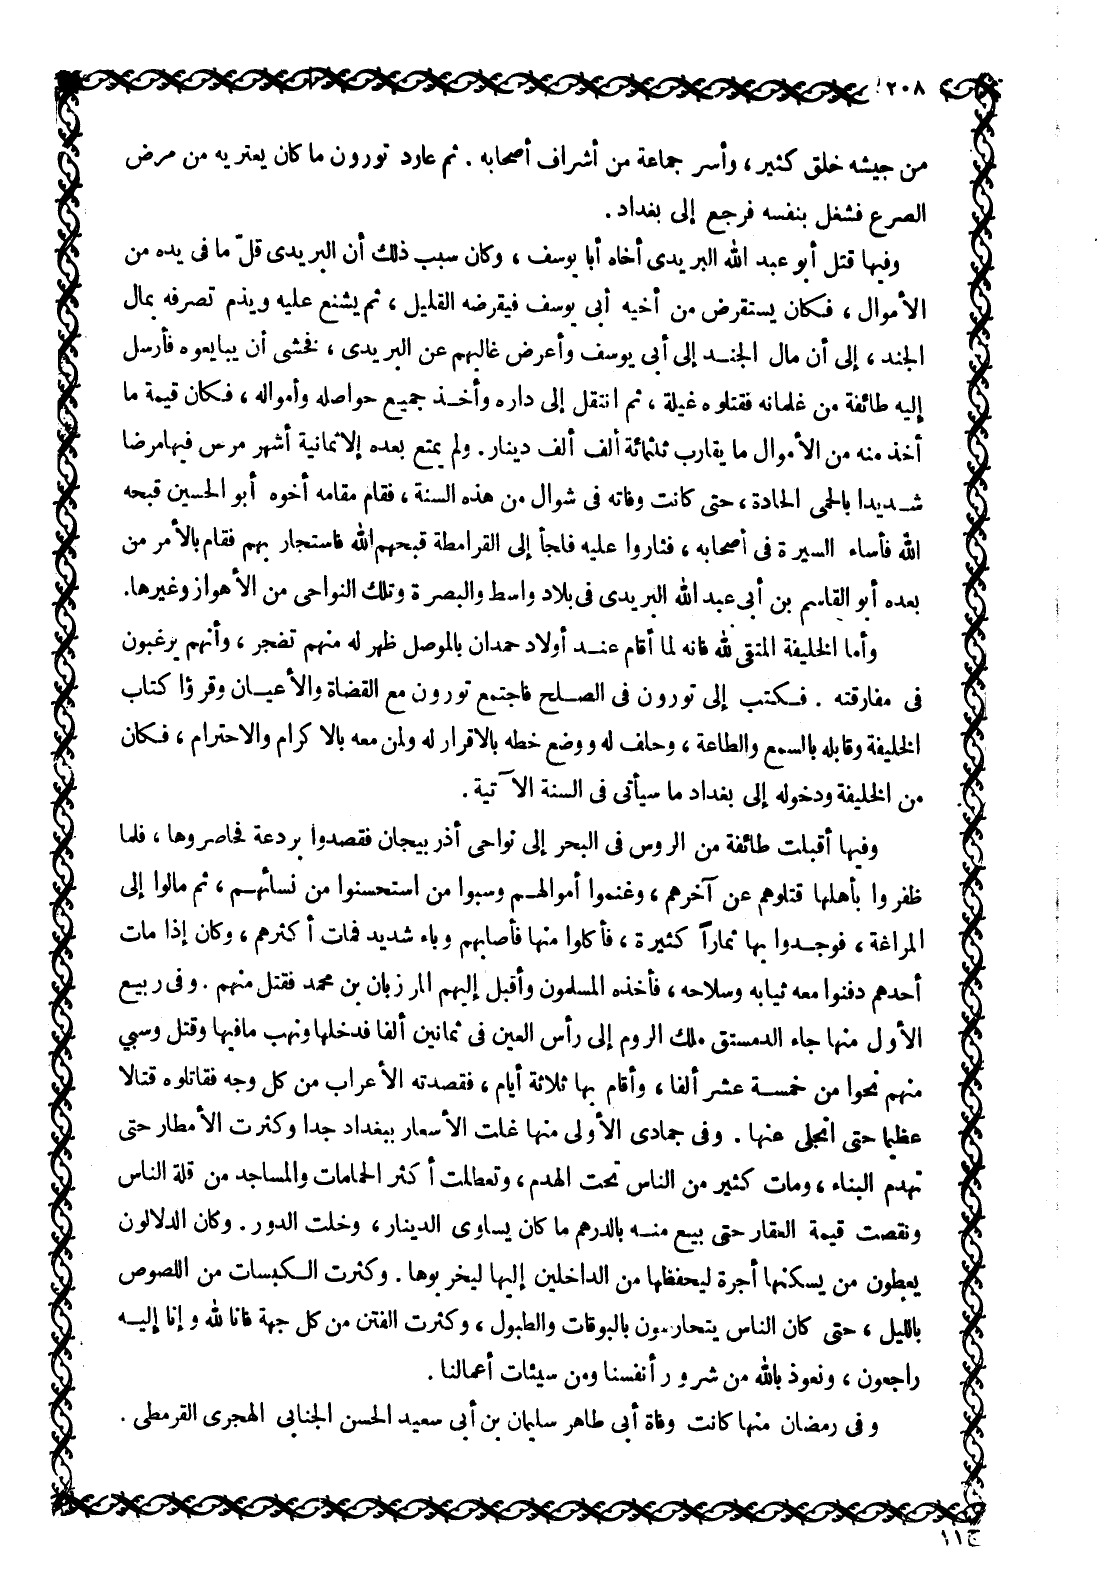 ٢٠٨
من جيشه خلق كثير ، وأسر جماعة من أشراف أصحابه . ثم عاود تورون ما كان يعتريه من مرض
الصرع فشغل بنفسه فرجع إلى بغداد .
وفيها قتل أبو عبد الله البريدى أخاه أبا يوسف ، وكان سبب ذلك أن البريدى قلّ ما فى يده من
الأموال ، فكان يستقرض من أخيه أبى يوسف فيقرضه القليل ، ثم يشنع عليه ويذم تصرفه بمال
الجند ، إلى أن مال الجند إلى أبى يوسف وأعرض غالبهم عن البريدى ، فخشى أن يبايعوه فأرسل
إليه طائفة من غلمانه فقتلوه غيلة ، ثم انتقل إلى داره وأخذ جميع حواصله وأمواله ، فكان قيمة ما
أخذ منه من الأموال ما يقارب ثلثمائة ألف ألف دينار . ولم يمتع بعده إلا ثمانية أشهر مرض فيها مرضا
شديدا بالحمى الحادة ، حتى كانت وفاته فى شوال من هذه السنة ، فقام مقامه أخوه أبو الحسين قبحه
الله فأساء السيرة فى أصحابه ، فثاروا عليه فلجأ إلى القرامطة قبحهم الله فاستجار بهم فقام بالأمر من
بعده أبو القاسم بن أبى عبد الله البريدى فى بلاد واسط والبصرة وتلك النواحى من الأهواز وغيرها .
وأما الخليفة المتقى لله فانه لما أقام عند أولاد حمدان بالموصل ظهر له منهم تضجر ، وأنهم يرغبون
فى مفارقته . فكتب إلى تورون فى الصلح فاجتمع تورون مع القضاة والأعيان وقرؤا كتاب
الخليفة وقابله بالسمع والطاعة ، وحلف له ووضع خطه بالاقرار له ولمن معه بالاكرام والاحترام ، فكان
من الخليفة ودخوله إلى بغداد ما سيأتى فى السنة الآتية .
وفيها أقبلت طائفة من الروس فى البحر إلى نواحى أذربيجان فقصدوا بردعة فحاصروها ، فلما
ظفروا بأهلها قتلوهم عن آخرهم ، وغنموا أموالهم وسبوا من استحسنوا من نسائهم ، ثم مالوا إلى
المراغة ، فوجدوا بها ثماراً كثيرة ، فأكلوا منها فأصابهم وباء شديد فمات أكثرهم ، وكان إذا مات
أحدهم دفنوا معه ثيابه وسلاحه ، فأخذه المسلمون وأقبل إليهم المرزبان بن محمد فقتل منهم . وفى ربيع
الأول منها جاء الدمستق ملك الروم إلى رأس العين فى ثمانين ألفا فدخلها ونهب مافيها وقتل وسبي
منهم نحوا من خمسة عشر ألفا ، وأقام بها ثلاثة أيام ، فقصدته الأعراب من كل وجه فقاتلوه قتالا
عظيما حتى انجلى عنها . وفى جمادى الأولى منها غلت الأسعار ببغداد جدا وكثرت الأمطار حتى
تهدم البناء ، ومات كثير من الناس تحت الهدم ، وتعطلت أكثر الحمامات والمساجد من قلة الناس
ونقصت قيمة العقار حتى بيع منه بالدرهم ما كان يساوى الدينار ، وخلت الدور . وكان الدلالون
يعطون من يسكنها أجرة ليحفظها من الداخلين إليها ليخربوها . وكثرت الكبسات من اللصوص
بالليل ، حتى كان الناس يتحارسون بالبوقات والطبول ، وكثرت الفتن من كل جهة فانا لله وإنا إليه
راجعون ، ونعوذ بالله من شرور أنفسنا ومن سيئات أعمالنا .
وفى رمضان منها كانت وفاة أبى طاهر سليمان بن أبى سعيد الحسن الجنابى الهجرى القرمطى .
ج١١